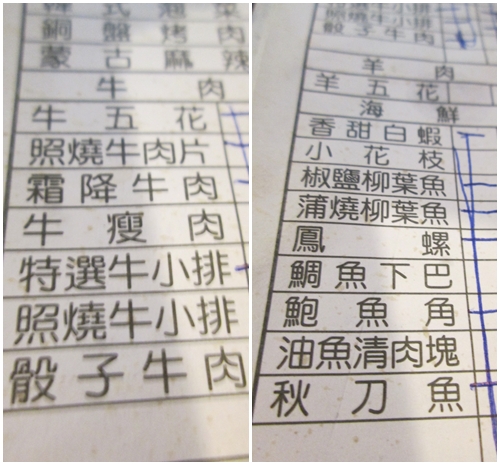 韓式泡菜
銅盤烤肉
蒙古麻辣
牛肉
牛五花
照燒牛肉片
霜降牛肉
牛瘦肉
特選牛小排
照燒牛小排
骰子牛肉
照燒牛小排
骰子牛肉
羊肉
羊五花
海鮮
香甜白蝦
小花枝
椒鹽柳葉魚
蒲燒柳葉魚
鳳螺
鯛魚下巴
鮑魚角
油魚清肉塊
秋刀魚